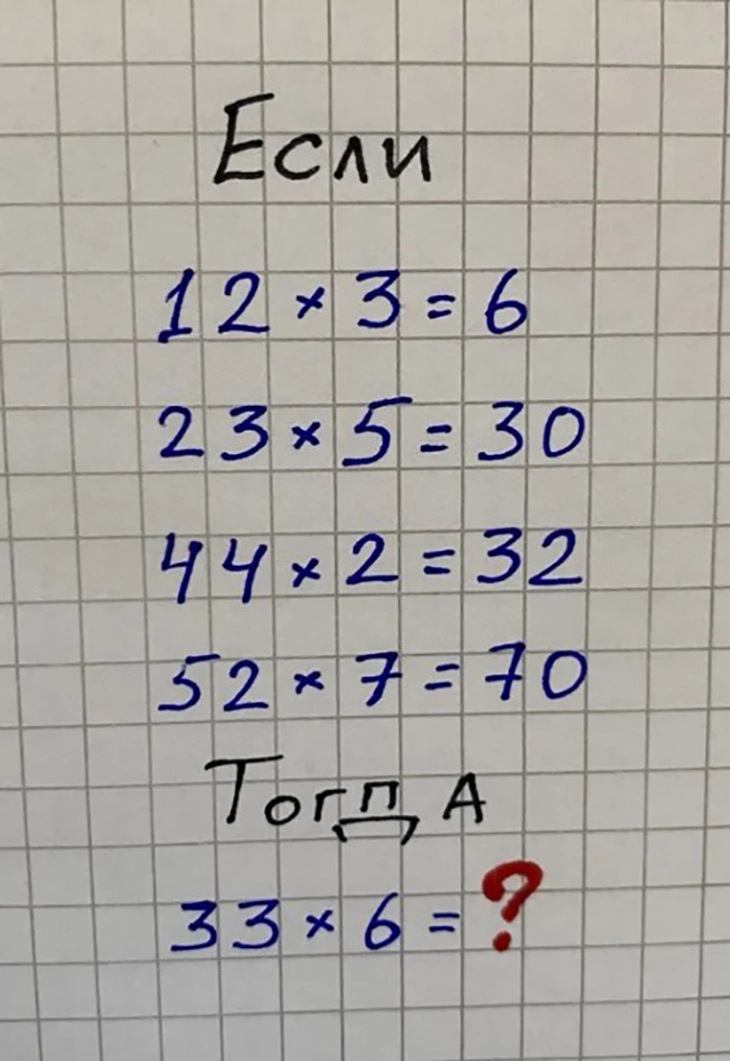 Если
12 × 3 = 6
23 × 5 = 30
44 × 2 = 32
52 × 7 = 70
Тогда
33 × 6 = ?